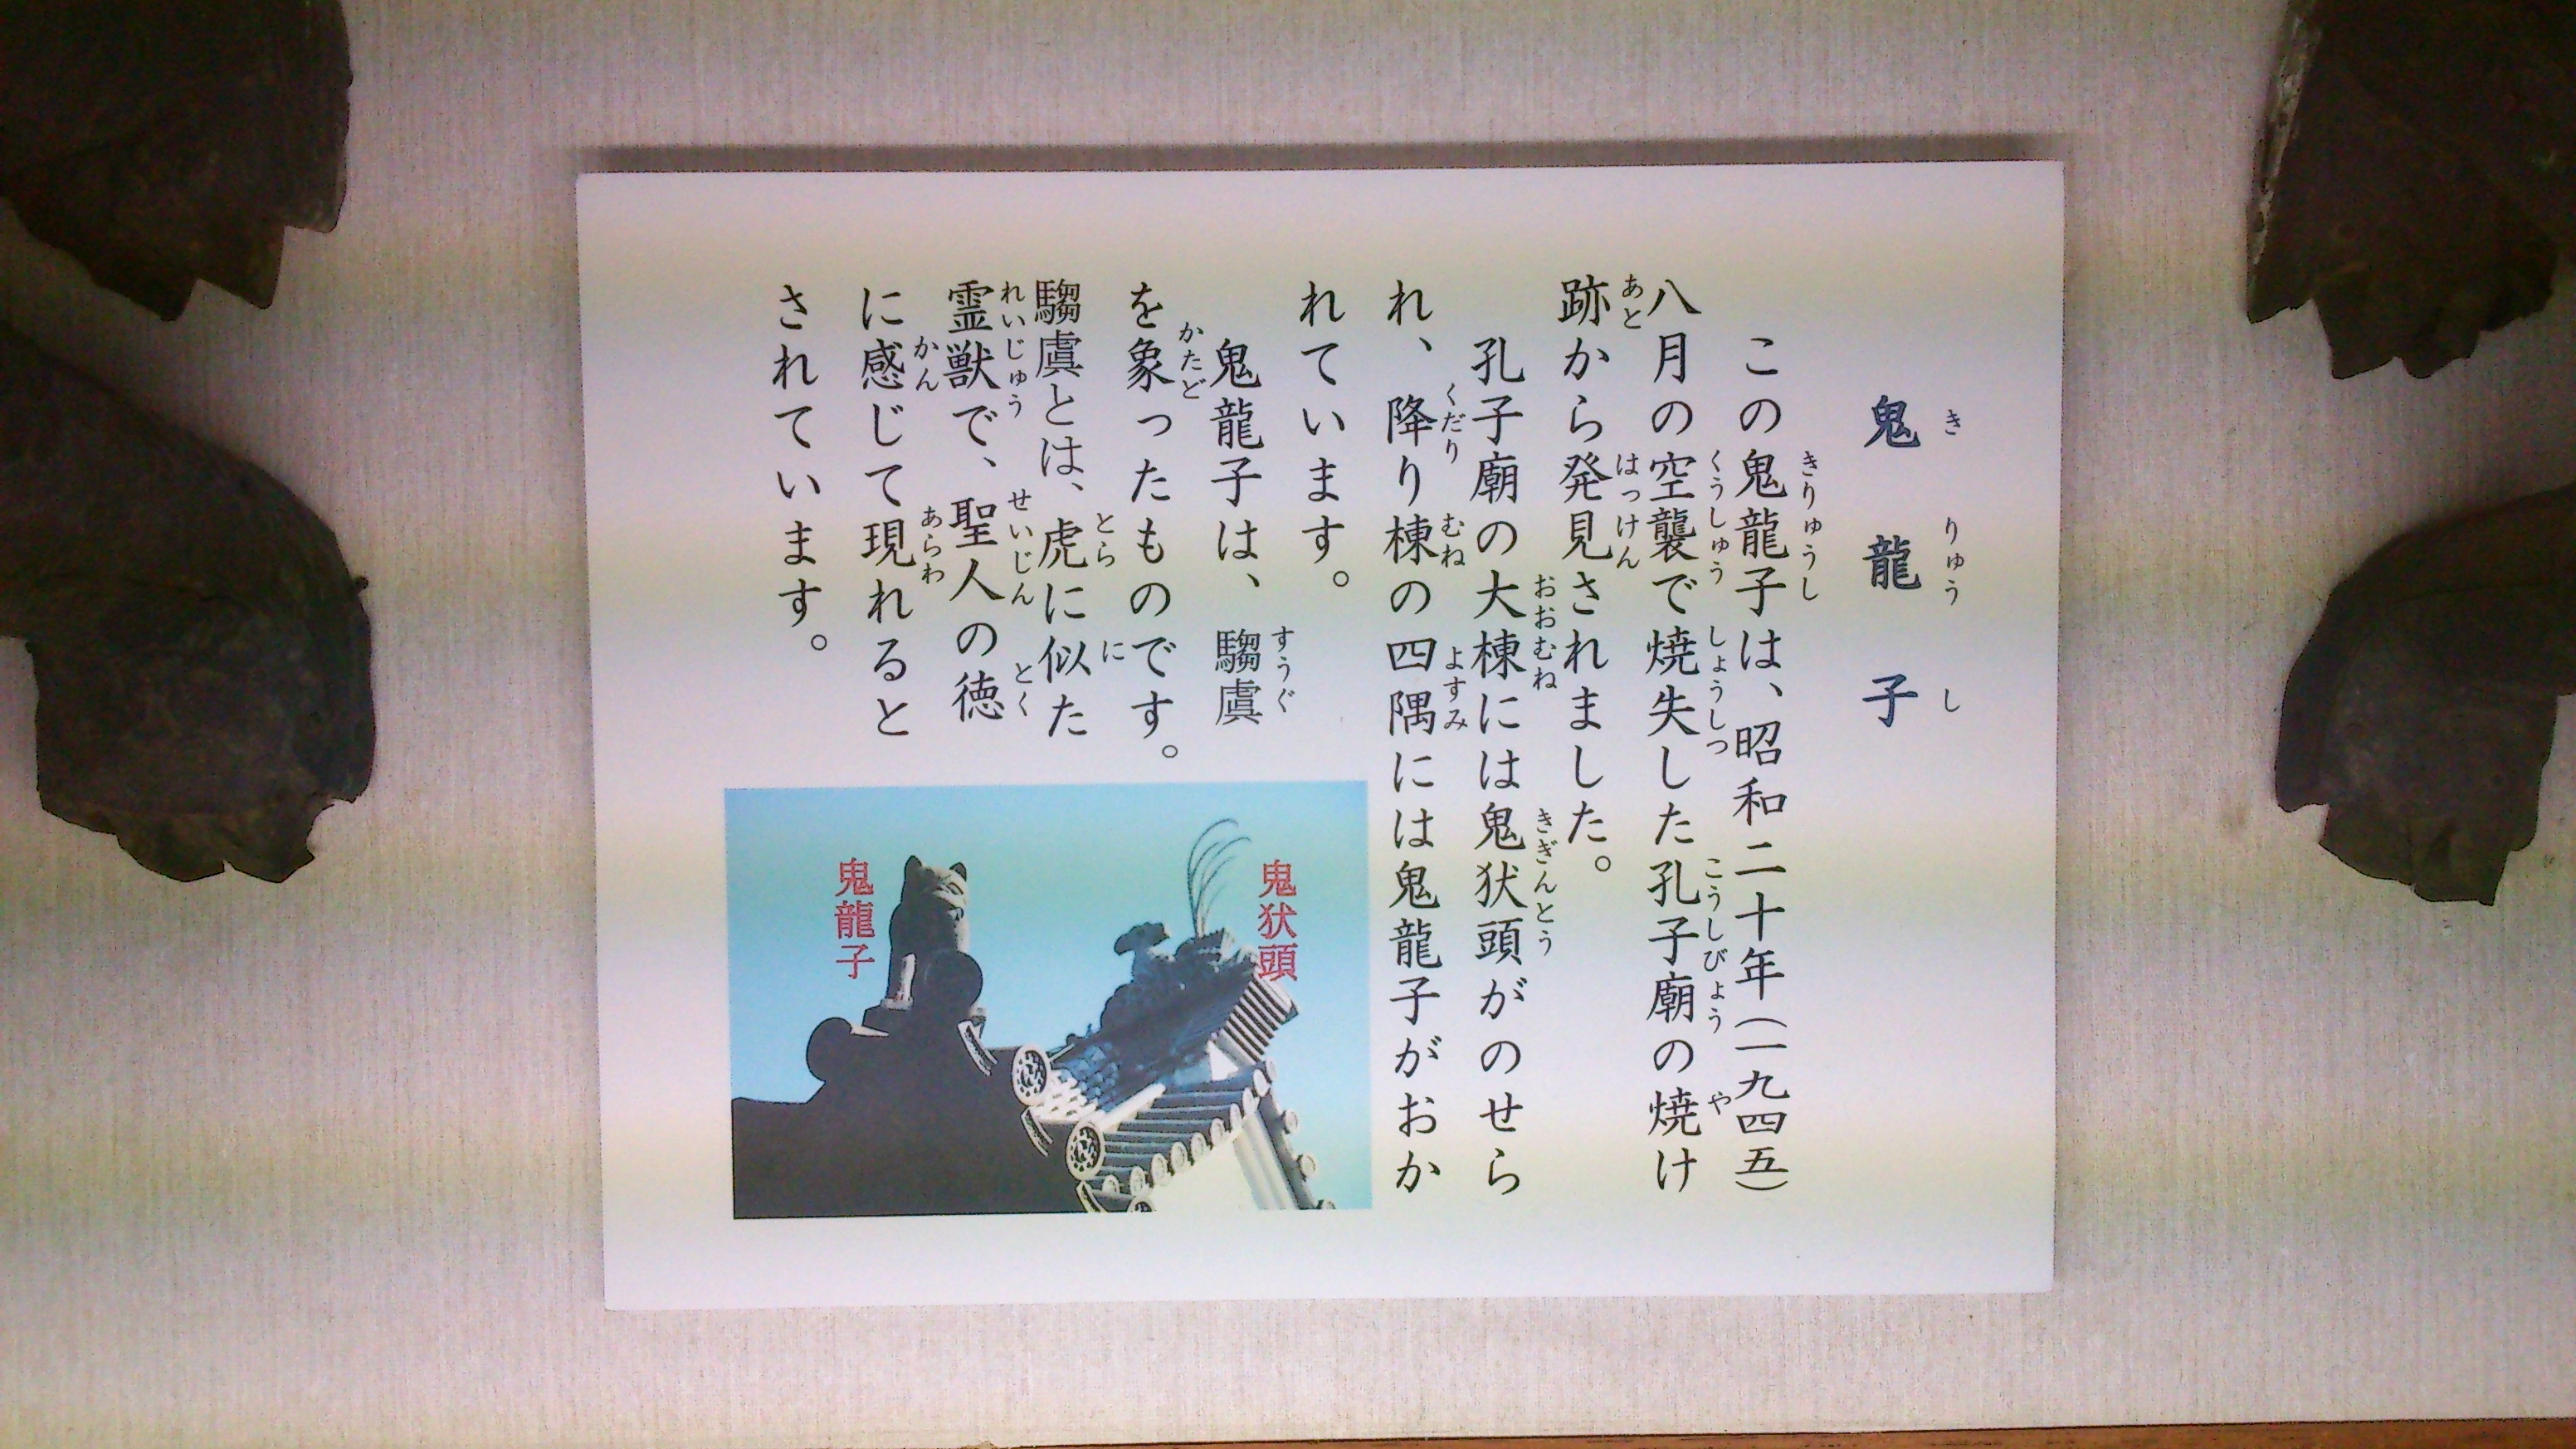 鬼龍子
きりゅうし
この鬼龍子は、昭和二十年（一九四五）
きりゅうし
八月の空襲で焼失した孔子廟の焼け
くうしゅう しょうしつ こうしびょう や
跡から発見されました。
あと はっけん
孔子廟の大棟には鬼犾頭がのせら
おおむね きぎんとう
れ、降り棟の四隅には鬼龍子がおか
くだり むね よすみ
れています。
鬼龍子は、騶虞
すうぐ
を象ったものです。
かたど
騶虞とは、虎に似た
とら に
霊獣で、聖人の徳
れいじゅう せいじん とく
に感じて現れると
かん あらわ
されています。
鬼犾頭
鬼龍子